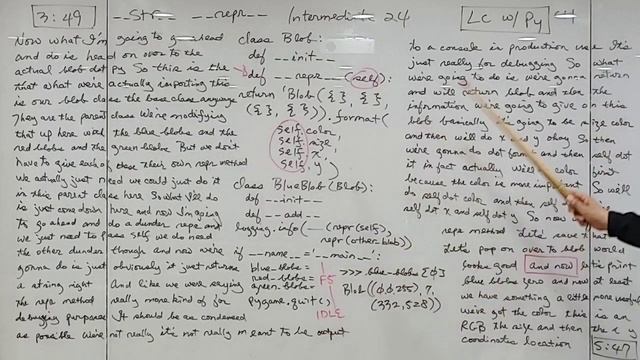 3:49 __Str__ __repr__ Intermediate 24 LC w/ Py
Now what I'm going to go ahead
and do is head on over to the
actual blob dot py So this is the
that what we're actually importing this
is our blob class the base class anyways
They are the parent class we're modifying
that up here with the blue blobs and the
red blobs and the green blobs But we don't
have to give each of these their own repr method
we actually just need we could just do it
in this parent class here So what I'll do
is just come down here and now I'm going
to go ahead and do a dunder repr and
we just need to pass self we do need
the other dunder though and now we're
gonna do is just obviously it just returns
a string right And like we were saying
the repr method really more kind of for
debugging purposes It should be as condensed
as possible We're not really it's not really meant to be output
class Blob:
def __init__
def __repr__(self):
return 'Blob({}, {},
({}, {})'.format(
self.color,
self.size,
self.x,
self.y)
class BlueBlob(Blob):
def __init__
def __add__
logging.info(__(repr(self),
repr(other_blob))
if __name__ == '__main__':
blue_blobs=
red_blobs=
green_blobs=
F5
pygame.quit()
IDLE
>>> blue_blobs[0]
Blob((0,0,255), 7,
(392,528))
to a console in production use It's
just really for debugging So what
we're going to do is we're gonna return
and will return blob and then the
information we're going to give on this
blob basically is going to be size color
and then will do x and y okay So then
we're gonna do dot format and then self dot
it in fact actually will color first
because the color is more important So will
do self dot color and then self
self dot x and self dot y So now
repr method Let's save that
Let's pop on over to blob world
looks good and now let's print
blue blobs zero and now at least
we have something a little more useful
we've got the color this is an
RGB the size and then the x y
coordinates location
5:47